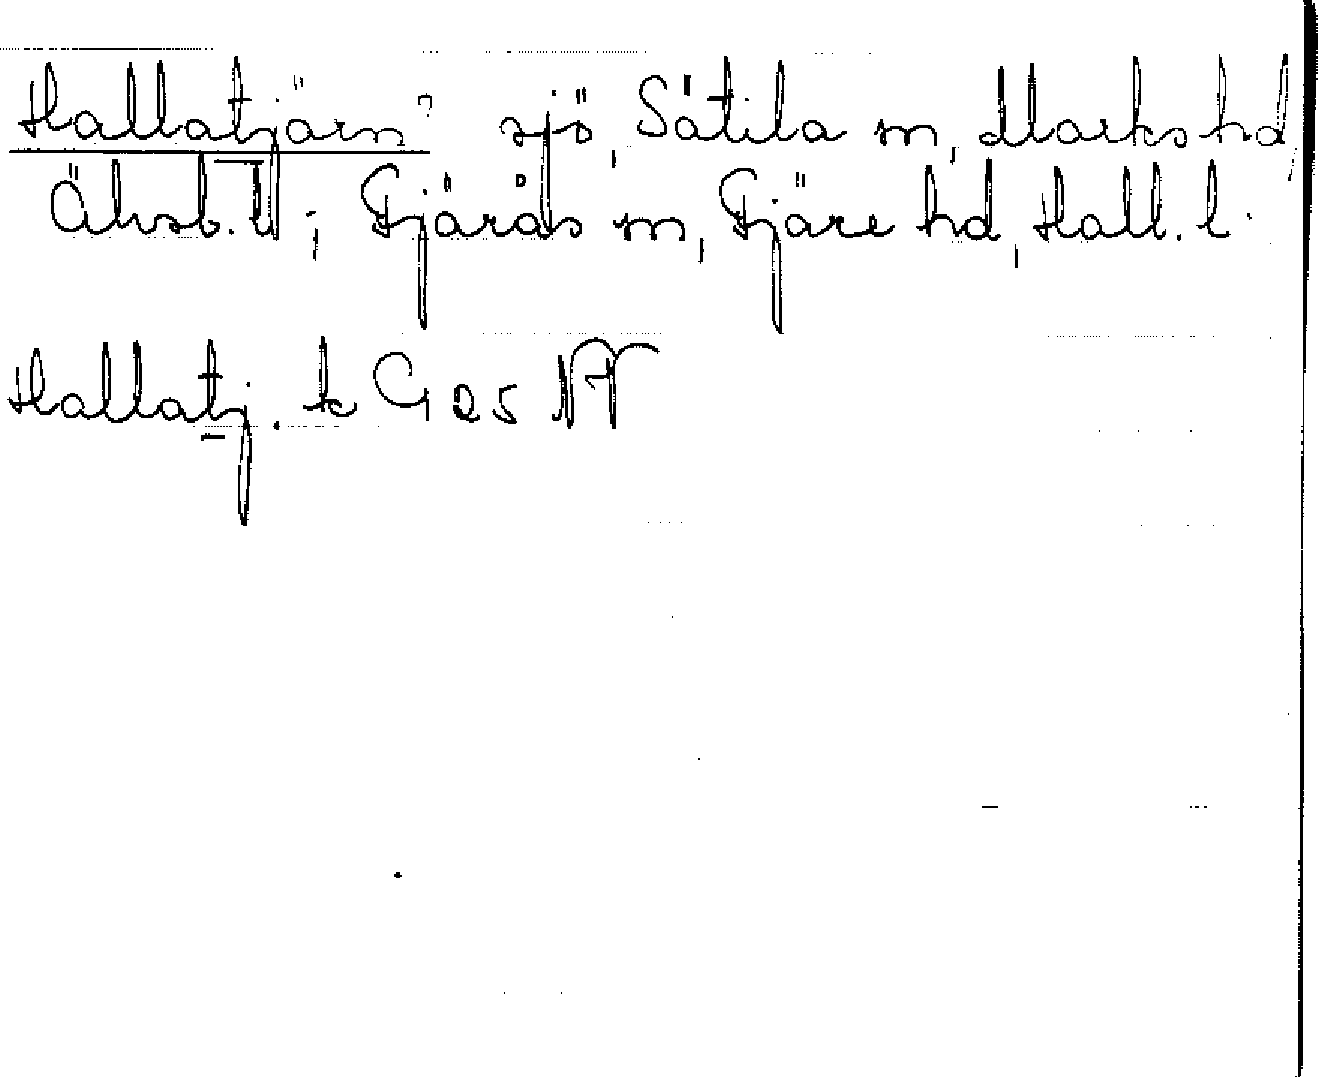 Hallatjärn, sjö, Sätila sn, Marks hd,
Älvsb. l; Fjärås sn, Fjäre hd, Hall. l.
Hallatj. k G 25 NV